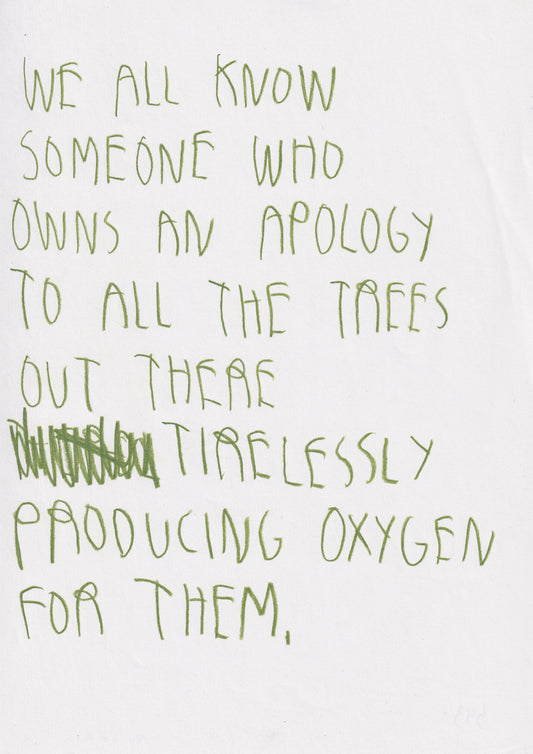 WE ALL KNOW
SOMEONE WHO
OWNS AN APOLOGY
TO ALL THE TREES
OUT THERE
TIRELESSLY
PRODUCING OXYGEN
FOR THEM.